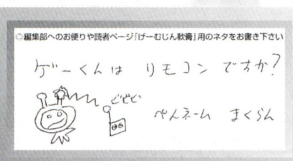 ◎編集部へのお便りや読者ページ「げーむじん軟膏」用のネタをお書き下さい
ゲーくんは リモコン ですか?
ビビビ
ぺんネーム まくらん